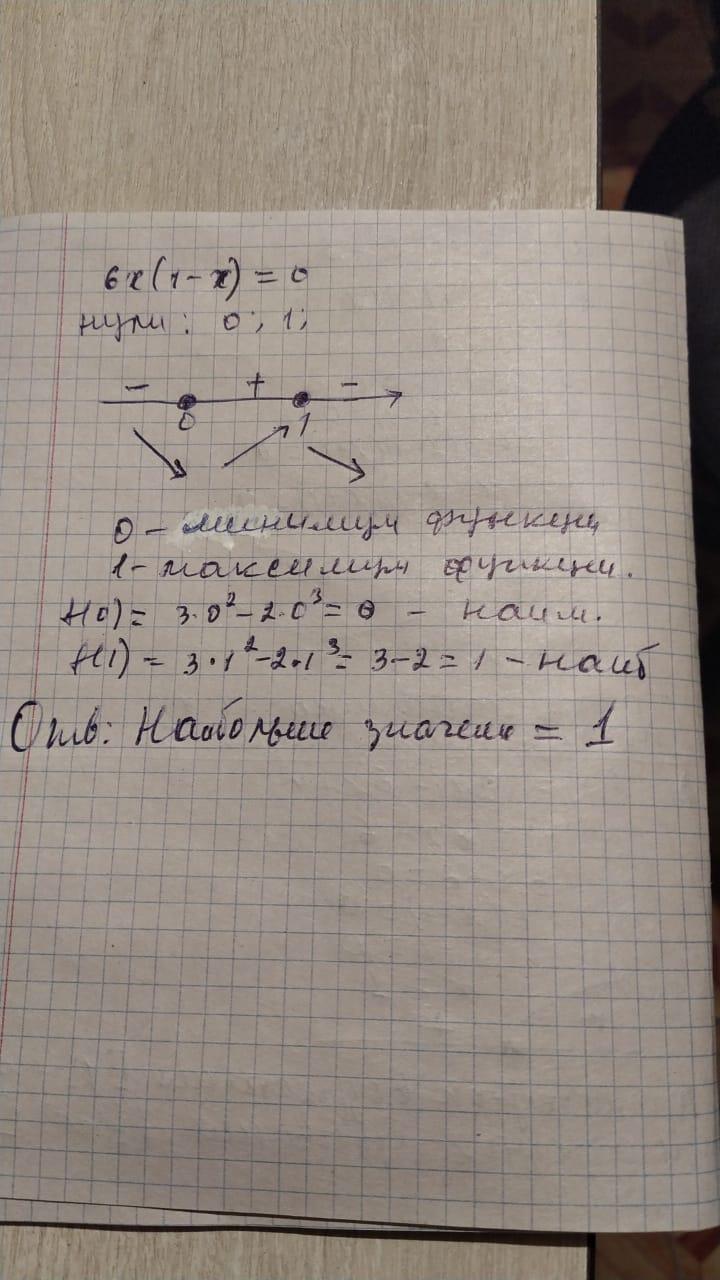 6x(1-x) = 0
нули: 0; 1;
- + -
0 1
0 - минимум функции
1- максимум функции.
f(0) = 3·0²-2·0³= 0 - наим.
f(1) = 3·1²-2·1³= 3-2=1 - наиб
Отв: Наибольше значение = 1